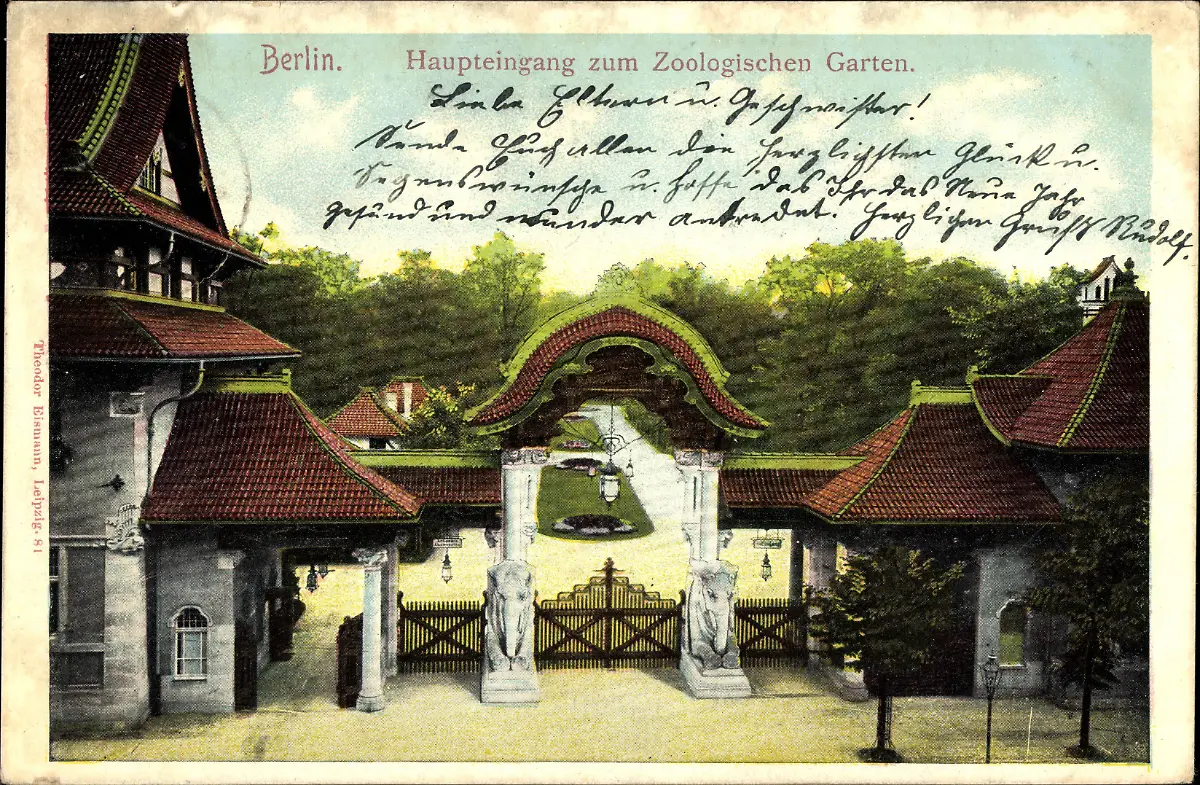 Berlin. Haupteingang zum Zoologischen Garten.
Liebe Eltern u. Geschwister!
Sende Euch allen die herzlichsten Glück u.
Segenswünsche u. hoffe das Ihr das Neue Jahr
gesund und munder antredet. Herzlichen Gruß Rudolf.
Theodor Eismann, Leipzig. 81